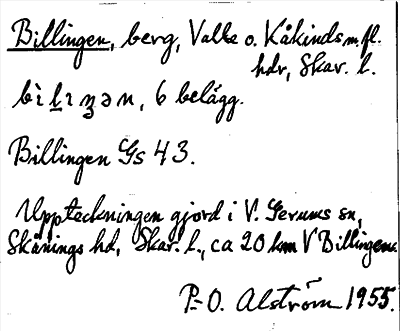 Billingen, berg, Valle o. Kåkinds m.fl.
hdr, Skar. l.
bìlıʒən, 6 belägg.
Billingen Gs 43.
Uppteckningen gjord i V. Gerums sn,
Skånings hd, Skar. l., ca 20 km V Billingen.
P-O. Alström 1955.